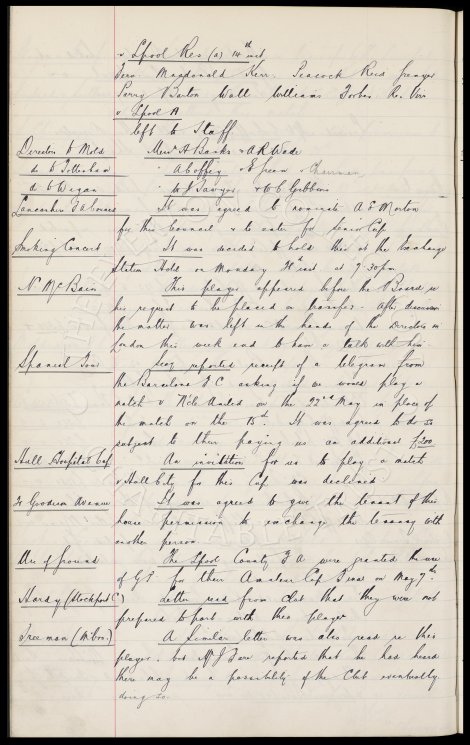 v Lpool Res (a) 14th inst
Macdonald Kerr. Peacock Reid
Barton Wall Williams Forbes
v Lpool A
left to Staff
Directors to Mold Messrs A Banks & A R Wade
do to Tottenham " A Coffey & E Green & Chairman
do to Wigan " W J Sawyer & W C Gibbins
Lancashire F A Council It was agreed to nominate A E Morton
for this Council & to vote for Senior Cup
Smoking Concert It was decided to hold this at the Exchange
Station Hotel on Monday inst at 7.30pm
N. McBain This player appeared before the Board re
his request to be placed on transfer. After discussion
the matter was left in the hands of the Directors in
London this week end to have a talk with him
Spanish Tour Secy reported receipt of a telegram from
the Barcelona F C asking if we would play a
match v N'cle United on the 22nd May in place of
the match on the 15th. It was agreed to do so
subject to their paying us an additional £200
Hull Hospital Cup An invitation for us to play a match
v Hull City for this Cup was declined
Goodison Avenue It was agreed to give the tenant of this
house permission to exchange the tenancy with
another person.
Use of Ground The Lpool County F A were granted the use
of G P for their Amateur Cup Final on May 7th.
Hardy (Stockport C) Letter read from club that they were not
prepared to part with this player
Freeman (M'bro.) A similar letter was also read re this
player. but Mr J Fare reported that he has heard
there may be a possibility of the Club eventually
doing so.